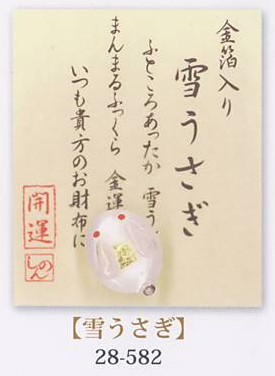 金箔入り
雪うさぎ
ふところあったか 雪う
まんまるふっくら 金運
いつも貴方のお財布に
開運
のしん
【雪うさぎ】
28-582